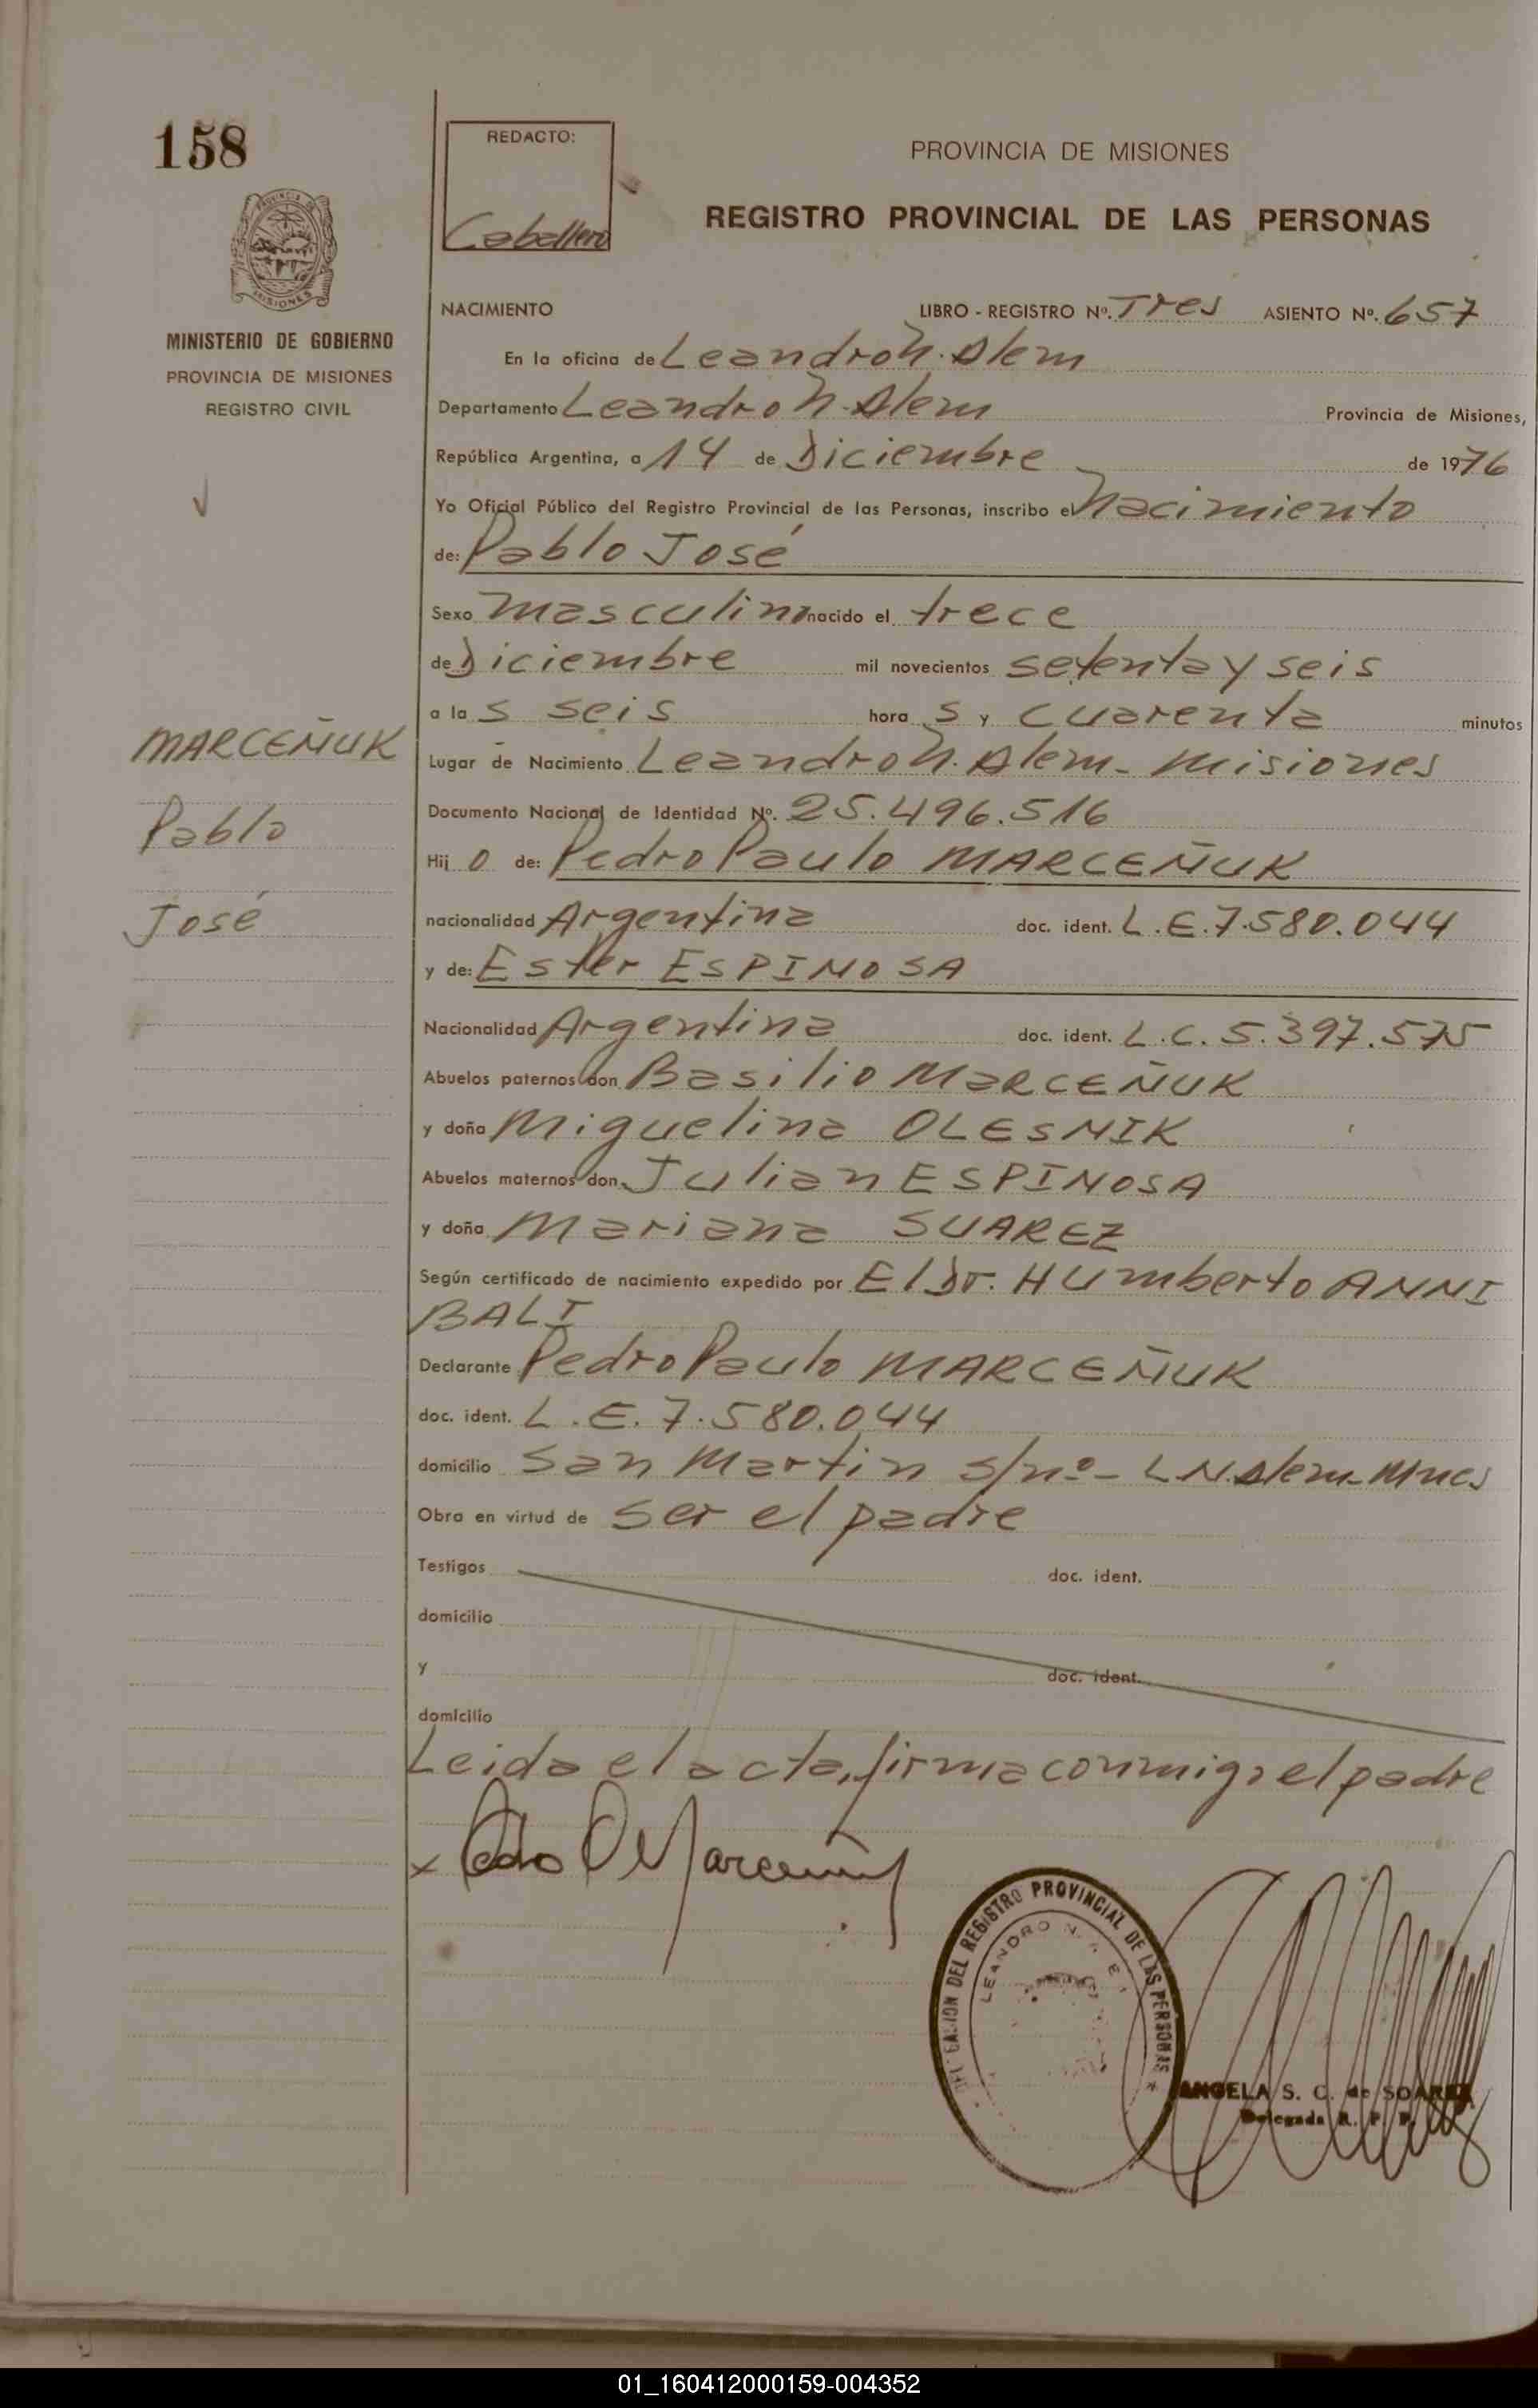 158
REDACTO:
Caballero
PROVINCIA DE MISIONES
REGISTRO PROVINCIAL DE LAS PERSONAS
MINISTERIO DE GOBIERNO
PROVINCIA DE MISIONES
REGISTRO CIVIL
NACIMIENTO LIBRO - REGISTRO Nº. Tres ASIENTO Nº. 657
En la oficina de Leandro N. Alem
Departamento Leandro N. Alem Provincia de Misiones,
República Argentina, a 14 de Diciembre de 1976
Yo Oficial Público del Registro Provincial de las Personas, inscribo el Nacimiento
de: Pablo José
Sexo masculino nacido el trece
de Diciembre mil novecientos setenta y seis
a la s seis hora s y cuarenta minutos
MARCEÑUK
Pablo
José
Lugar de Nacimiento Leandro N. Alem - Misiones
Documento Nacional de Identidad Nº. 25.496.516
Hij o de: Pedro Paulo MARCEÑUK
nacionalidad Argentina doc. ident. L.E. 7.580.044
y de: Ester ESPINOSA
Nacionalidad Argentina doc. ident. L.C. 5.397.575
Abuelos paternos don Basilio MARCEÑUK
y doña Miguelina OLESNIK
Abuelos maternos don Julian ESPINOSA
y doña Mariana SUAREZ
Según certificado de nacimiento expedido por El Dr. Humberto ANNI
BALI
Declarante Pedro Paulo MARCEÑUK
doc. ident. L.E. 7.580.044
domicilio San Martin s/nº - L.N. Alem - Mnes
Obra en virtud de ser el padre
Testigos doc. ident.
domicilio
y doc. ident.
domicilio
Leida el acta, firma conmigo el padre
x Pedro P Marceñuk
DELEGACION DEL REGISTRO PROVINCIAL DE LAS PERSONAS
LEANDRO N. ALE
ANGELA S. C. de SOAREZ
Delegada R. P. P.
01_160412000159-004352